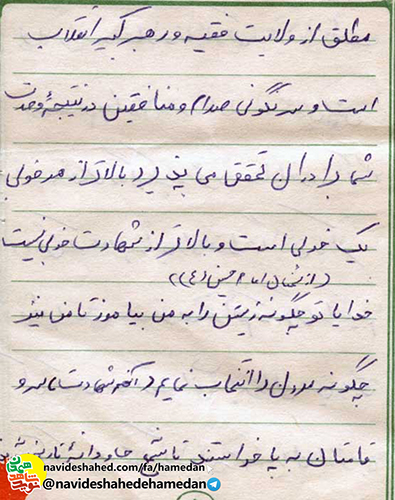 مطلق از ولایت فقیه و رهبر کبیر انقلاب
است و سرنگونی صدام و منافقین در نتیجهٔ وحدت
شما برادران تحقق می پذیرد بالاتر از هر خوبی
یک خوبی است و بالاتر از شهادت خوبی نیست
(از سخنان امام حسین (ع))
خدایا تو چگونه زیستن را به من بیاموز تا من نیز
چگونه مردن را انتخاب نمایم
قامتتان به پا خواستند تا
navideshahed.com/fa/hamedan
@navideshahedehamedan